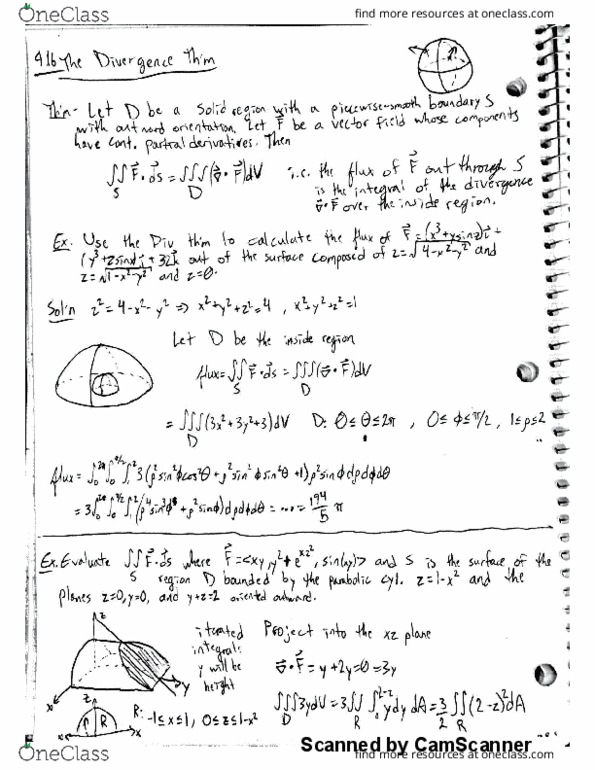 OneClass
find more resources at oneclass.com
4.16 The Divergence Thm
Thm- Let D be a solid region with a piecewise-smooth boundary S
with outward orientation. Let F⃗ be a vector field whose components
have cont. partial derivatives. Then
∬_S F⃗·ds⃗ = ∭_D (∇⃗·F⃗)dV i.e. the flux of F⃗ out through S
is the integral of the divergence
∇⃗·F⃗ over the inside region.
Ex. Use the Div thm to calculate the flux of F⃗=(x³+ysinz)i⃗+
(y³+zsinx)j⃗+3zk⃗ out of the surface composed of z=√4-x²-y² and
z=√1-x²-y² and z=0.
Sol'n z²=4-x²-y² ⇒ x²+y²+z²=4 , x²+y²+z²=1
Let D be the inside region
flux=∬_S F⃗·ds⃗ = ∭_D (∇⃗·F⃗)dV
= ∭_D (3x²+3y²+3)dV D: 0≤θ≤2π , 0≤ϕ≤π/2 , 1≤ρ≤2
flux = ∫₀^2π ∫₀^π/2 ∫₁² 3(ρ²sin²ϕcos²θ+ρ²sin²ϕsin²θ+1)ρ²sinϕdρdϕdθ
= 3∫₀^2π ∫₀^π/2 ∫₁² (ρ⁴sin³ϕ+ρ²sinϕ)dρdϕdθ = ... = 194/5 π
Ex. Evaluate ∬_S F⃗·ds⃗ where F⃗=<xy, y²+e^xz², sin(xy)> and S is the surface of the
region D bounded by the parabolic cyl. z=1-x² and the
planes z=0, y=0, and y+z=2 oriented outward.
iterated Project into the xz plane
integral:
y will be ∇⃗·F⃗ = y+2y+0 = 3y
height
∭_D 3ydV = 3∬_R ∫₀^2-z ydy dA = 3/2 ∬_R (2-z)²dA
z
y
x
z
R
x
R: -1≤x≤1, 0≤z≤1-x²
Scanned by CamScanner
OneClass
find more resources at oneclass.com